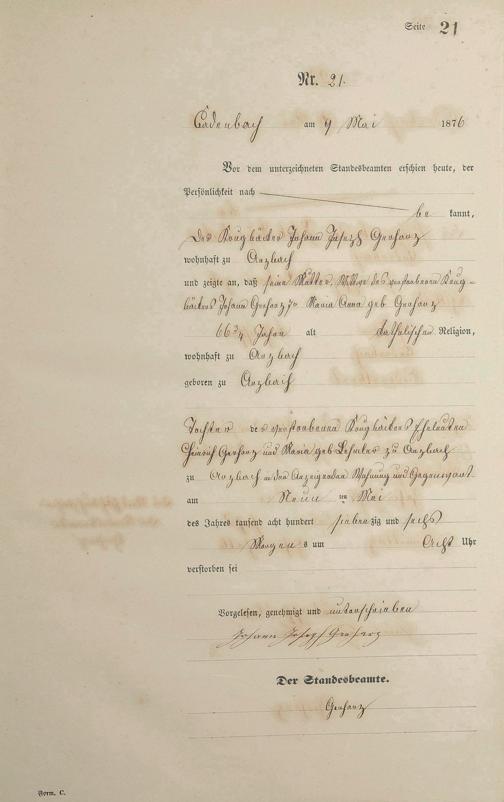 Seite 21
Nr. 21.
Cadenbach am 9 Mai 1876
Vor dem unterzeichneten Standesbeamten erschien heute, der
Persönlichkeit nach
be kannt,
der Krugbäcker Johann Joseph Gerharz
wohnhaft zu Arzbach
und zeigte an, daß seine Mutter, Wittwe des verstorbenen Krug-
bäckers Johann Gerharz Maria Anna geb Gerharz
66 3/4 Jahre alt katholischer Religion,
wohnhaft zu Arzbach
geboren zu Arzbach
Tochter der verstorbenen Krugbäckers Eheleuten
Heinrich Gerharz und Maria geb zu Arzbach
zu Arzbach in des Anzeigenden Wohnung und Gegenwart
am Neun ten Mai
des Jahres tausend acht hundert siebenzig und sechs
Morgen s um Acht Uhr
verstorben sei
Vorgelesen, genehmigt und unterschrieben
Johann Joseph Gerharz
Der Standesbeamte.
Gerharz
Form. C.